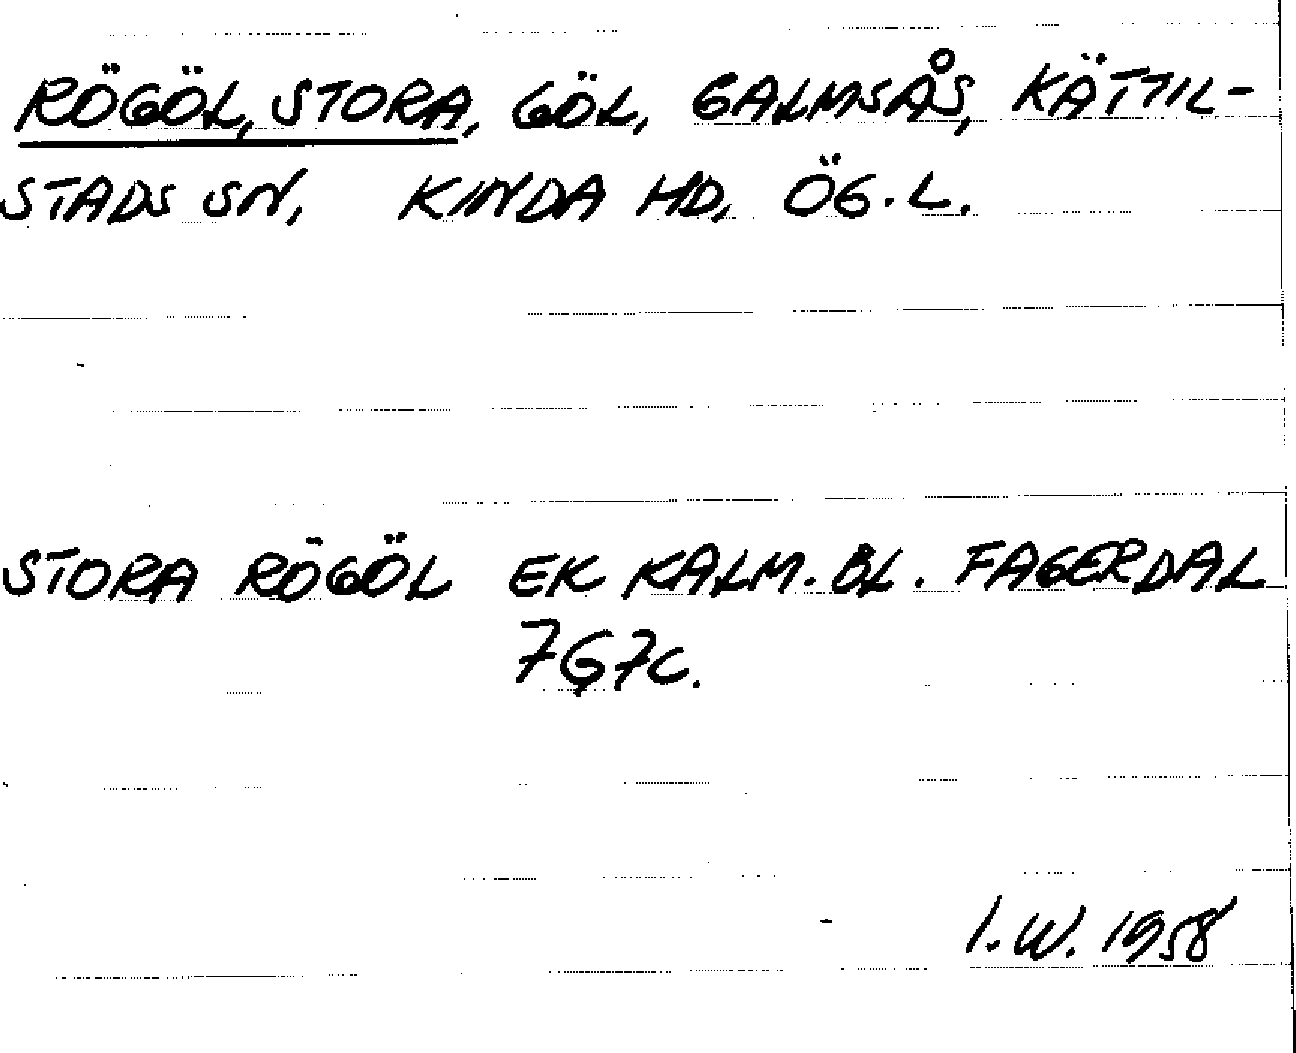 RÖGÖL, STORA, GÖL, GALMSÅS, KÄTTIL-
STADS SN, KINDA HD, ÖG. L.
STORA RÖGÖL EK KALM. BL. FAGERDAL
7G7C.
I. W. 1958